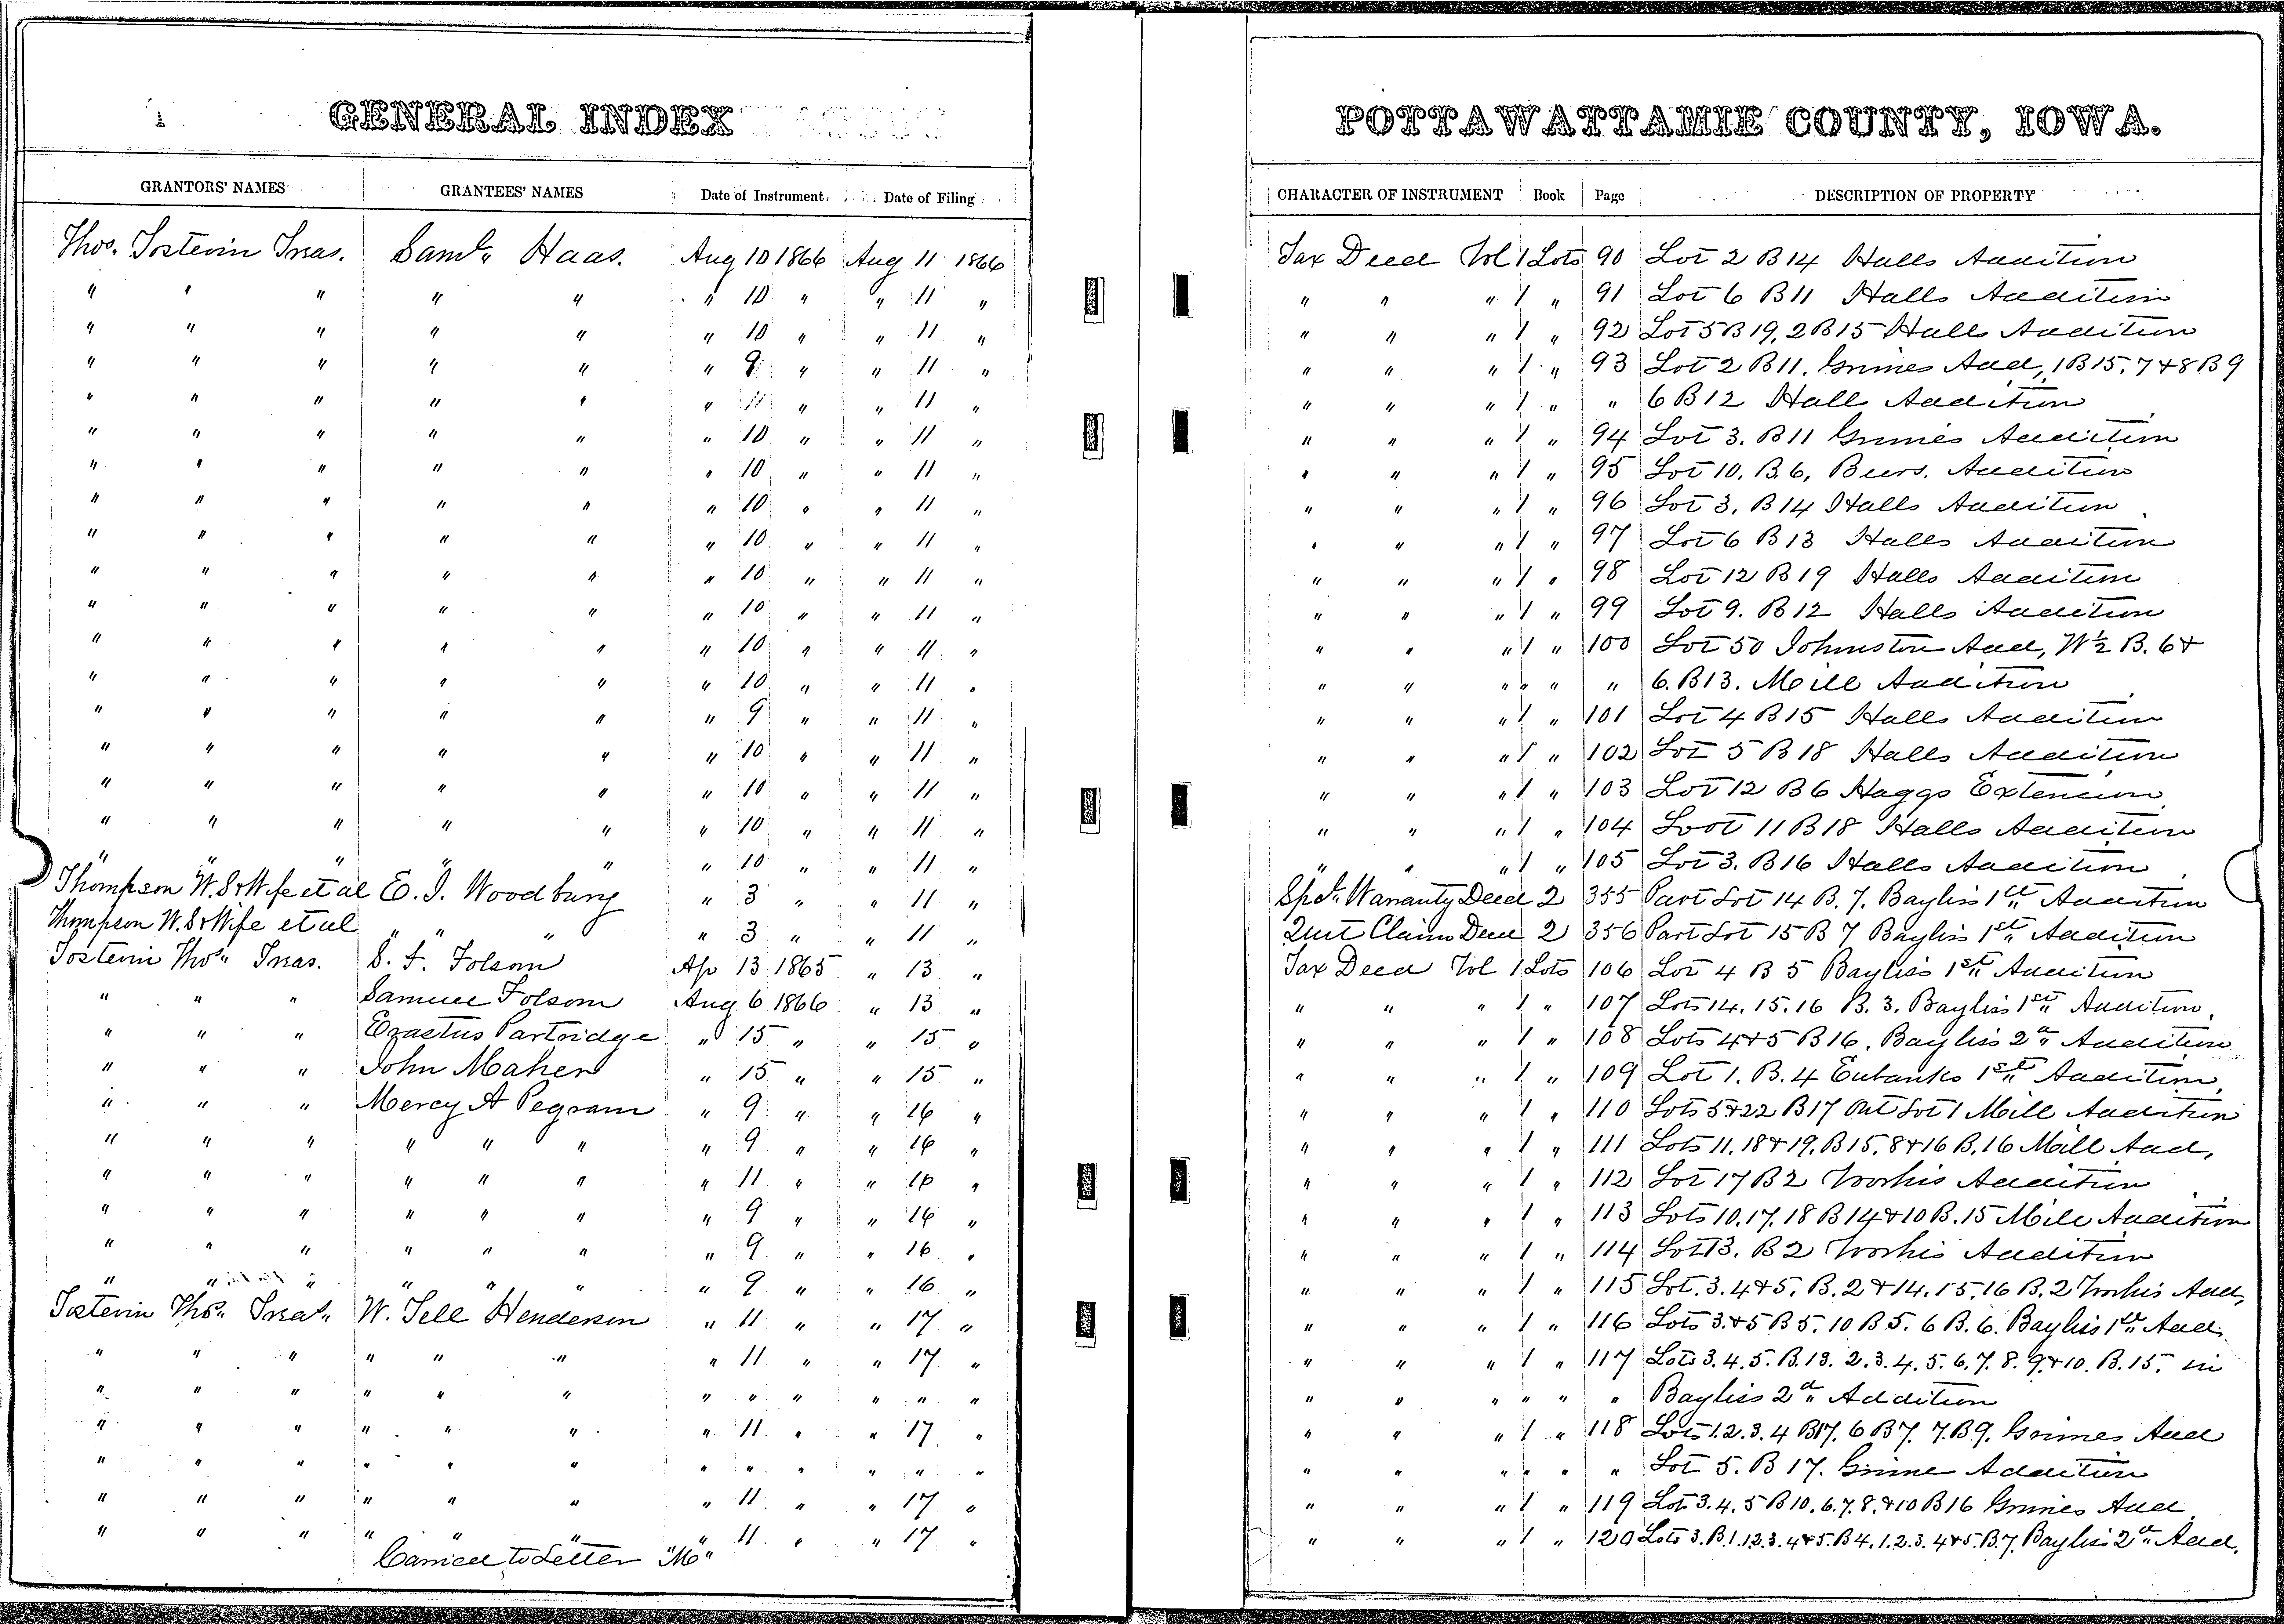 GENERAL INDEX POTTAWATTAMIE COUNTY, IOWA.
GRANTORS' NAMES GRANTEES' NAMES Date of Instrument. Date of Filing CHARACTER OF INSTRUMENT Book Page DESCRIPTION OF PROPERTY
Thos. Tostevin Treas. Saml. Haas. Aug 10 1866 Aug 11 1866 Tax Deed Vol 1 Lots 90 Lot 2 B 14 Halls Addition
" " " " " " 10 " " 11 " " " " 1 " 91 Lot 6 B 11 Halls Addition
" " " " " " 10 " " 11 " " " " 1 " 92 Lot 5 B 19, 2 B 15 Halls Addition
" " " " " " 9 " " 11 " " " " 1 " 93 Lot 2 B 11. Grimes Add, 1 B 15. 7 & 8 B 9
" " " " " " 11 " " 11 " " " " 1 " " 6 B 12 Hall Addition
" " " " " " 10 " " 11 " " " " 1 " 94 Lot 3. B 11 Grimes Addition
" " " " " " 10 " " 11 " " " " 1 " 95 Lot 10. B. 6, Beers. Addition
" " " " " " 10 " " 11 " " " " 1 " 96 Lot 3. B 14 Halls Addition
" " " " " " 10 " " 11 " " " " 1 " 97 Lot 6 B 13 Halls Addition
" " " " " " 10 " " 11 " " " " 1 " 98 Lot 12 B 19 Halls Addition
" " " " " " 10 " " 11 " " " " 1 " 99 Lot 9. B 12 Halls Addition
" " " " " " 10 " " 11 " " " " 1 " 100 Lot 50 Johnston Add, W½ B. 6 &
" " " " " " 10 " " 11 " " " " " " " 6. B 13. Mill Addition
" " " " " " 9 " " 11 " " " " 1 " 101 Lot 4 B 15 Halls Addition
" " " " " " 10 " " 11 " " " " 1 " 102 Lot 5 B 18 Halls Addition
" " " " " " 10 " " 11 " " " " 1 " 103 Lot 12 B 6 Haggs Extencion
" " " " " " 10 " " 11 " " " " 1 " 104 Loot 11 B 18 Halls Addition
" " " " " " 10 " " 11 " " " " 1 " 105 Lot 3. B 16 Halls Addition
Thompson W. S & Wife et al E. I. Woodbury " 3 " " 11 " Spcl. Warranty Deed 2 355 Part Lot 14 B. 7. Bayliss 1st Addition
Thompson W. S & Wife et al " " " " 3 " " 11 " Quit Claim Deed 2 356 Part Lot 15 B 7 Bayliss 1st Addition
Tostevin Thos Treas. S. F. Folsom Ap 13 1865 " 13 " Tax Deed Vol 1 Lots 106 Lot 4 B 5 Bayliss 1st Addition
" " " Samuel Folsom Aug 6 1866 " 13 " " " " 1 " 107 Lots 14. 15. 16 B. 3. Bayliss 1st Addition.
" " " Erastus Partridge " 15 " " 15 " " " " 1 " 108 Lots 4 & 5 B 16. Bayliss 2d Addition
" " " John Maher " 15 " " 15 " " " " 1 " 109 Lot 1. B. 4 Eubanks 1st Addition.
" " " Mercy A Pegram " 9 " " 16 " " " " 1 " 110 Lots 5 & 22 B 17 Out Lot 1 Mill Addition
" " " " " " " 9 " " 16 " " " " 1 " 111 Lots 11. 18 & 19. B 15. 8 & 16 B. 16 Mill Add,
" " " " " " " 11 " " 16 " " " " 1 " 112 Lot 17 B 2 Addition
" " " " " " " 9 " " 16 " " " " 1 " 113 Lots 10. 17. 18 B 14 & 10 B. 15 Mill Addition
" " " " " " " 9 " " 16 " " " " 1 " 114 Lot 13. B 2 Addition
" " " " " " " 9 " " 16 " " " " 1 " 115 Lot. 3. 4 & 5. B. 2 & 14. 15. 16 B. 2 Add,
Tostevin Thos Treas. W. Tell Henderson " 11 " " 17 " " " " 1 " 116 Lots 3. & 5 B 5. 10 B 5. 6 B. 6. Bayliss 1st Add.
" " " " " " " 11 " " 17 " " " " 1 " 117 Lots 3. 4. 5. B. 13. 2. 3. 4. 5. 6. 7. 8. 9. & 10. B. 15. in
" " " " " " " " " " " " " " " " " " Bayliss 2d Addition
" " " " " " " 11 " " 17 " " " " 1 " 118 Lots 1. 2. 3. 4 B 17. 6 B 7. 7. B 9. Grimes Add
" " " " " " " " " " " " " " " " " " Lot 5. B 17. Grime Addition
" " " " " " " 11 " " 17 " " " " 1 " 119 Lots 3. 4. 5 B 10. 6. 7. 8. & 10 B 16 Grimes Add
" " " " " " " 11 " " 17 " " " " 1 " 120 Lots 3. B. 1. 1. 2. 3. 4 & 5. B 4. 1. 2. 3. 4 & 5. B. 7. Bayliss 2d Add.
Carried to Letter "M"